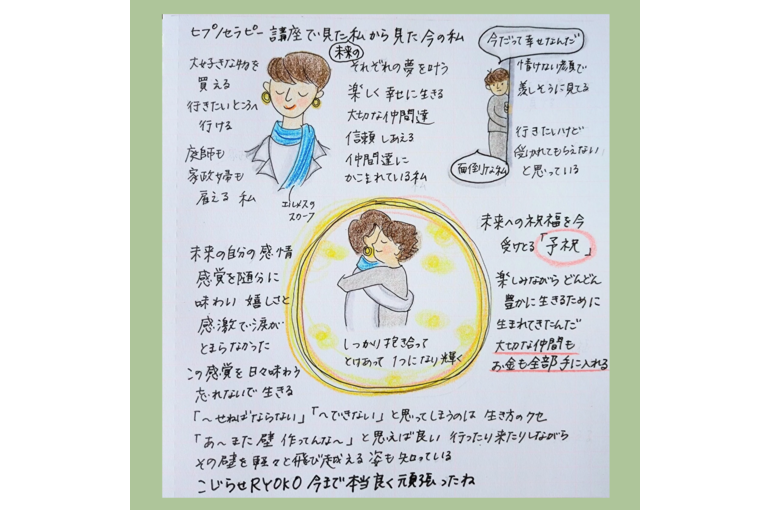 ヒプノセラピー講座で見た私から見た今の私
未来の
大好きな物を
買える
行きたいところへ
行ける
庭師も
家政婦も
雇える 私
エルメスの
スカーフ
それぞれの夢を叶う
楽しく幸せに生きる
大切な仲間達
信頼しあえる
仲間達に
かこまれている私
今だって幸せなんだ
情けない顔で
羨しそうに見てる
行きたいけど
受け入れてもらえない
と思っている
面倒な私
未来への祝福を今
受けとる「予祝」
未来の自分の感情
感覚を随分に
味わい 嬉しさと
感激で涙が
とまらなかった
この感覚を日々味わう
忘れないで生きる
しっかり抱き合って
とけあって 1つになり輝く
楽しみながら どんどん
豊かに生きるために
生まれてきたんだ
大切な仲間も
お金も全部手に入れる
「〜せねばならない」「へできない」と思ってしまうのは 生き方のクセ
「あ〜また壁 作ってんな〜」と思えば良い 行ったり来たりしながら
その壁を軽々と飛び越える姿も知っている
こじらせRYOKO 今まで本当良く頑張ったね